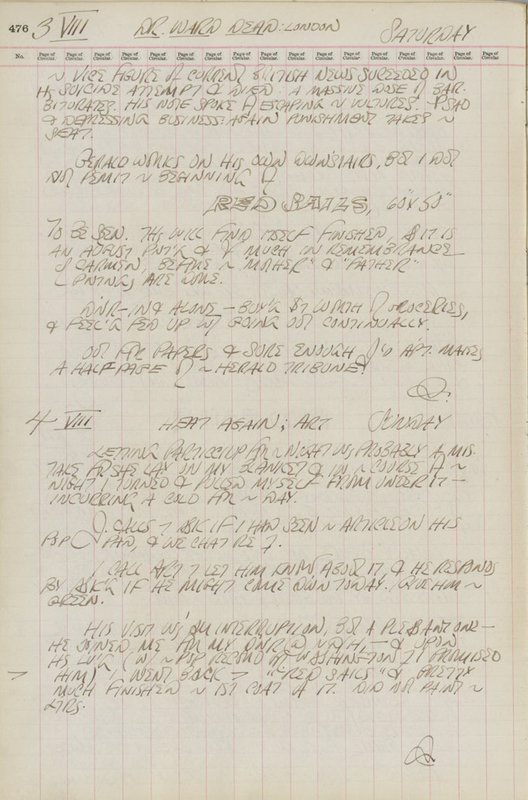 476 3 VIII DR. WARD DEAD: LONDON SATURDAY
No. Page of Circular. Page of Circular. Page of Circular. Page of Circular. Page of Circular. Page of Circular. Page of Circular. Page of Circular. Page of Circular. Page of Circular. Page of Circular. Page of Circular. Page of Circular. Page of Circular. Page of Circular.
~ VICE FIGURE OF CURRENT BRITISH NEWS SUCCEEDED IN
HIS SUICIDE ATTEMPT & DIED. A MASSIVE DOSE OF BAR-
BITURATES. HIS NOTE SPOKE OF ESCAPING ~ VULTURES. SAD
& DEPRESSING BUSINESS: AGAIN PUNISHMENT TAKES ~
SEAT.
GERALD WORKS ON HIS OWN DOWNSTAIRS, BUT I DO
NOT PERMIT ~ BEGINNING OF
RED SAILS, 60 X 50"
TO BE SEEN. THIS WILL FIND ITSELF FINISHED, & IT IS
AN AUGUST PNT'G & MUCH IN REMEMBRANCE
OF CARMEN, BEFORE ~ "MOTHER" & "FATHER"
PNTNGS ARE DONE.
DIN'R-IN & ALONE - BUY'G WORTH OF GROCERIES,
& FEEL'G FED UP W/ GOING OUT CONTINUALLY.
OUT FOR PAPERS & SURE ENOUGH APT. MAKES
A HALF PAGE OF ~ HERALD TRIBUNE!
4 VIII HEAT AGAIN; ART SUNDAY
LETTING UP FOR ~ NIGHT WAS PROBABLY A MIS-
TAKE FOR SHE LAY ON MY BLANKET & IN ~ COURSE OF ~
NIGHT I TURNED & PULLED MYSELF FROM UNDER IT -
INCURRING A COLD FOR ~ DAY.
J. CALLS TO ASK IF I HAD SEEN ~ ARTICLE ON HIS
PAD, & WE CHAT RE IT.
I CALL TO LET HIM KNOW ABOUT IT, & HE RESPONDS
BY ASK'G IF HE MIGHT COME DOWN TODAY. GIVE HIM ~
GREEN.
HIS VISIT WAS AN INTERRUPTION, BUT A PLEASANT ONE -
HE JOINED ME FOR MY - & UPON
HIS (W/ ~ POP RECORD OF WASHINGTON I PROMISED
HIM) I WENT BACK TO "RED SAILS" & PRETTY
MUCH FINISHED ~ 1ST COAT OF IT. DID NOT PAINT ~
LTRS.